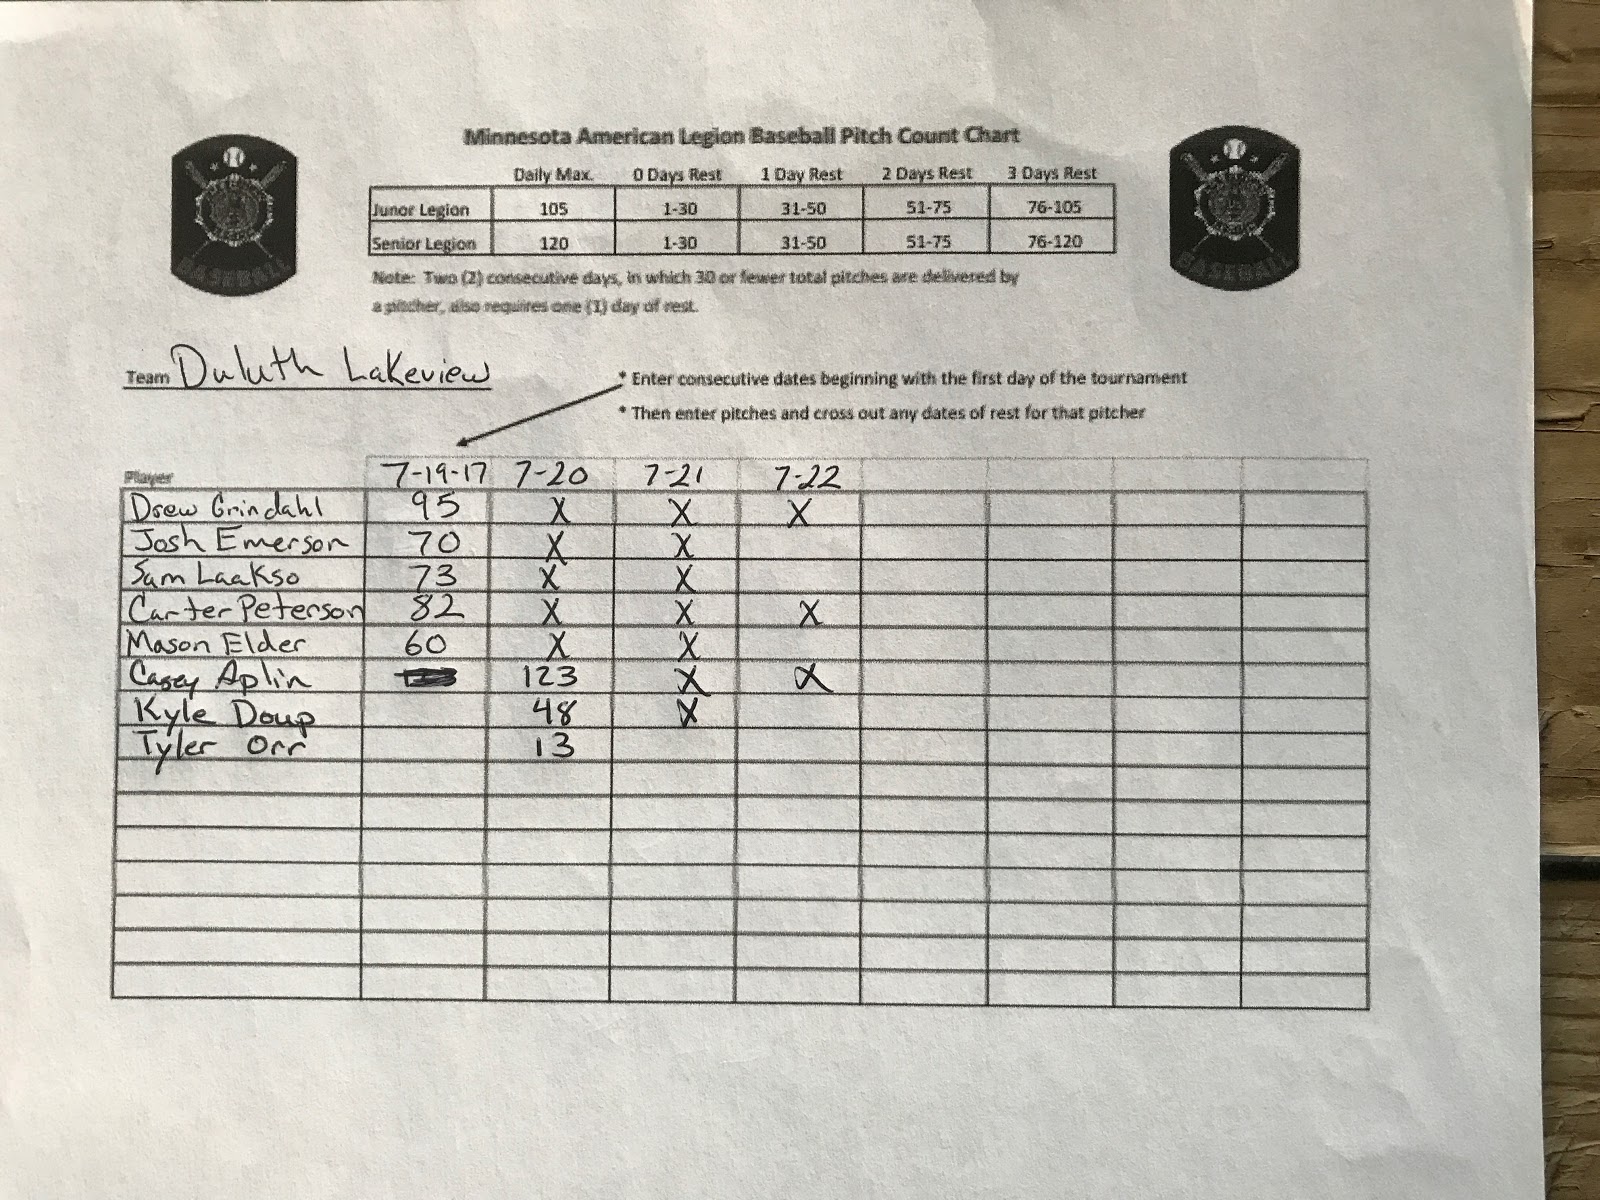 Minnesota American Legion Baseball Pitch Count Chart
Daily Max. 0 Days Rest 1 Day Rest 2 Days Rest 3 Days Rest
Junor Legion 105 1-30 31-50 51-75 76-105
Senior Legion 120 1-30 31-50 51-75 76-120
Note: Two (2) consecutive days, in which 30 or fewer total pitches are delivered by
a pitcher, also requires one (1) day of rest.
BASEBALL
BASEBALL
Team Duluth Lakeview
* Enter consecutive dates beginning with the first day of the tournament
* Then enter pitches and cross out any dates of rest for that pitcher
Player 7-19-17 7-20 7-21 7-22
Drew Grindahl 95 X X X
Josh Emerson 70 X X
Sam Laakso 73 X X
Carter Peterson 82 X X X
Mason Elder 60 X X
Casey Aplin 123 X X
Kyle Doup 48 X
Tyler Orr 13